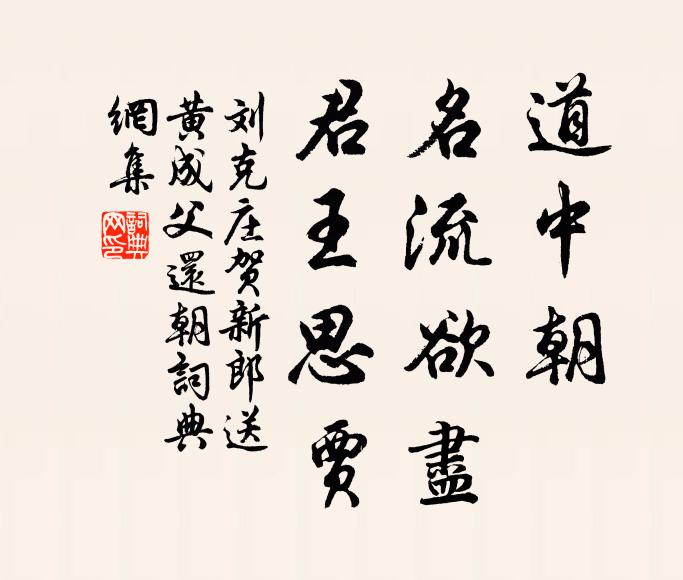 道中朝
名流欲盡
君王思贾
刘克庄贺新郎送
黄成父還朝詞典
網集
詞典網印